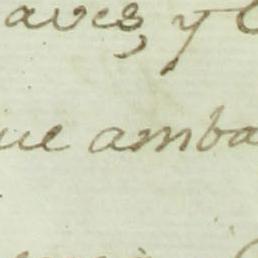 aves, y l
ue amba